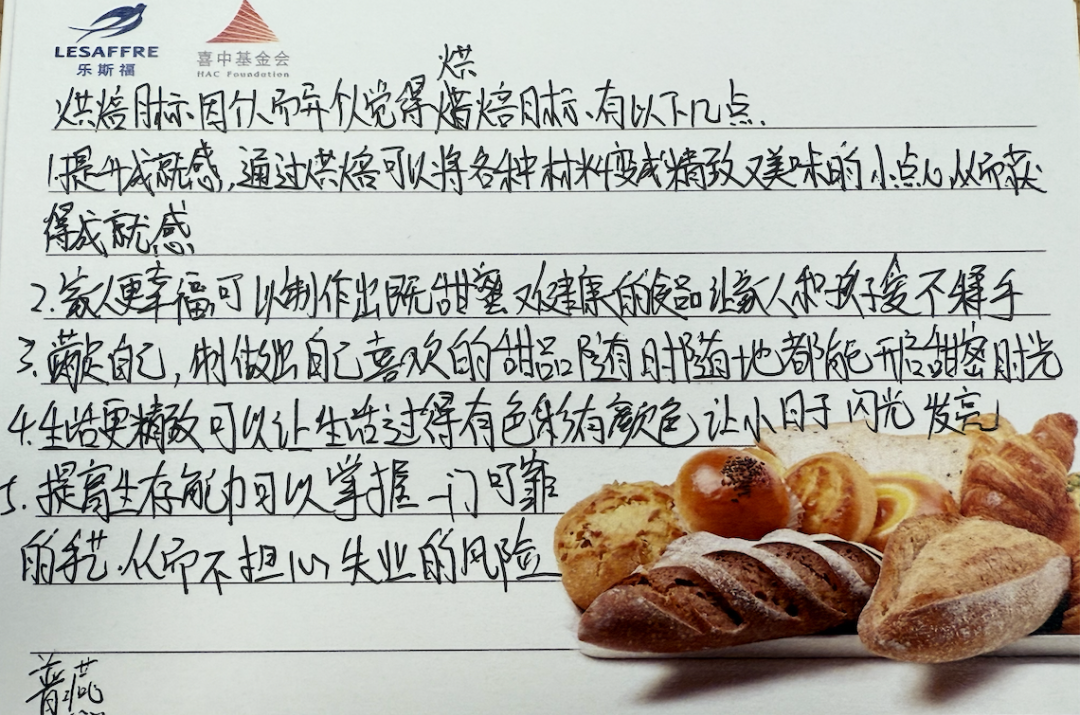 LESAFFRE
乐斯福
喜中基金会
HAC Foundation
烘
烘焙目标、因个人而异个人觉得焙焙目标、有以下几点.
1.提升成就感,通过烘焙可以将各种材料变成精致又美味的小点心从而获
得成就感
2.家人更幸福可以制作出既甜蜜又健康的食品让家人和孩子爱不释手
3.满足自己,制做出自己喜欢的甜品随时随地都能开启甜蜜时光
4.生活更精致可以让生活过得有色彩有颜色让小日子闪光发亮
5.提高生存能力可以掌握一门可靠
的手艺.从而不担心失业的风险